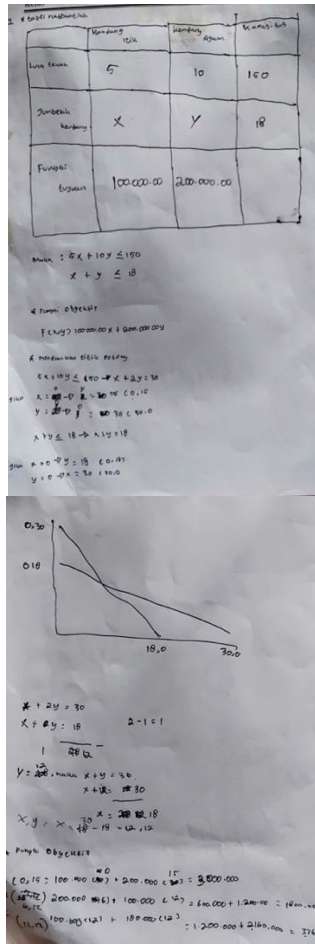 * tabel matematika
Kandang Itik Kandang Ayam Kapasitas
Luas tanah 5 10 150
Jumlah kandang X Y 18
Fungsi tujuan 100.000.00 200.000.00
Maka : 5x + 10y ≤ 150
x + y ≤ 18
* Fungsi Objektif
F(x,y) 100.000.00x + 200.000.00y
* menentukan titik potong
5x + 10y ≤ 150 → x + 2y = 30
x + y ≤ 18 → x + y = 18
x = 0 → y = 18 (0,18)
0,30
0,18
18,0
30,0
x + 2y = 30
x + y = 18
2-1=1
1 12
y = 12, maka x + y = 30
x + 30
x = 18
x, y = x = 30 - 18 = 12, 12
* Fungsi Objektif
(0,15 = 100.000 (0) + 200.000 (15) = 3.000.000
200.000 (6) + 100.000 (12) = 600.000 + 1.200.00 = 1800.00
(12,12) 100.000 (12) + 180.000 (12) = 1.200.000 + 2160.000 =